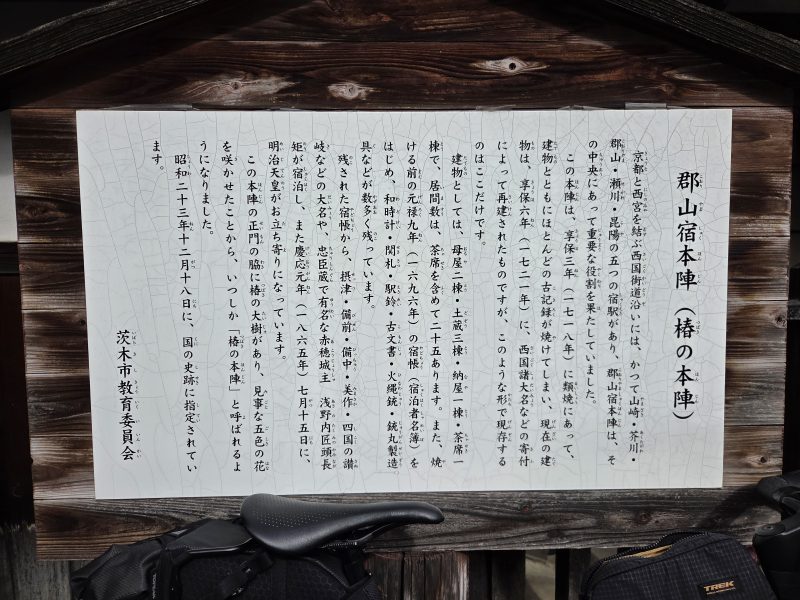 郡山宿本陣（椿の本陣）
京都と西宮を結ぶ西国街道沿いには、かつて山崎・芥川・
郡山・瀬川・昆陽の五つの宿駅があり、郡山宿本陣は、そ
の中央にあって重要な役割を果たしていました。
この本陣は、享保三年（一七一八年）に類焼にあって、
建物とともにほとんどの古記録が焼けてしまい、現在の建
物は、享保六年（一七二一年）に、西国諸大名などの寄付
によって再建されたものですが、このような形で現存する
のはここだけです。
建物としては、母屋二棟・土蔵三棟・納屋一棟・茶席一
棟で、居間数は、茶席を含めて二十五あります。また、焼
ける前の元禄九年（一六九六年）の宿帳（宿泊者名簿）を
はじめ、和時計・関札・駅鈴・古文書・火縄銃・銃丸製造
具などが数多く残っています。
残された宿帳から、摂津・備前・備中・美作・四国の讃
岐などの大名や、忠臣蔵で有名な赤穂城主　浅野内匠頭長
矩が宿泊し、また慶応元年（一八六五年）七月十五日に、
明治天皇がお立ち寄りになっています。
この本陣の正門の脇に椿の大樹があり、見事な五色の花
を咲かせたことから、いつしか「椿の本陣」と呼ばれるよ
うになりました。
昭和二十三年十二月十八日に、国の史跡に指定されてい
ます。
茨木市教育委員会
TREK